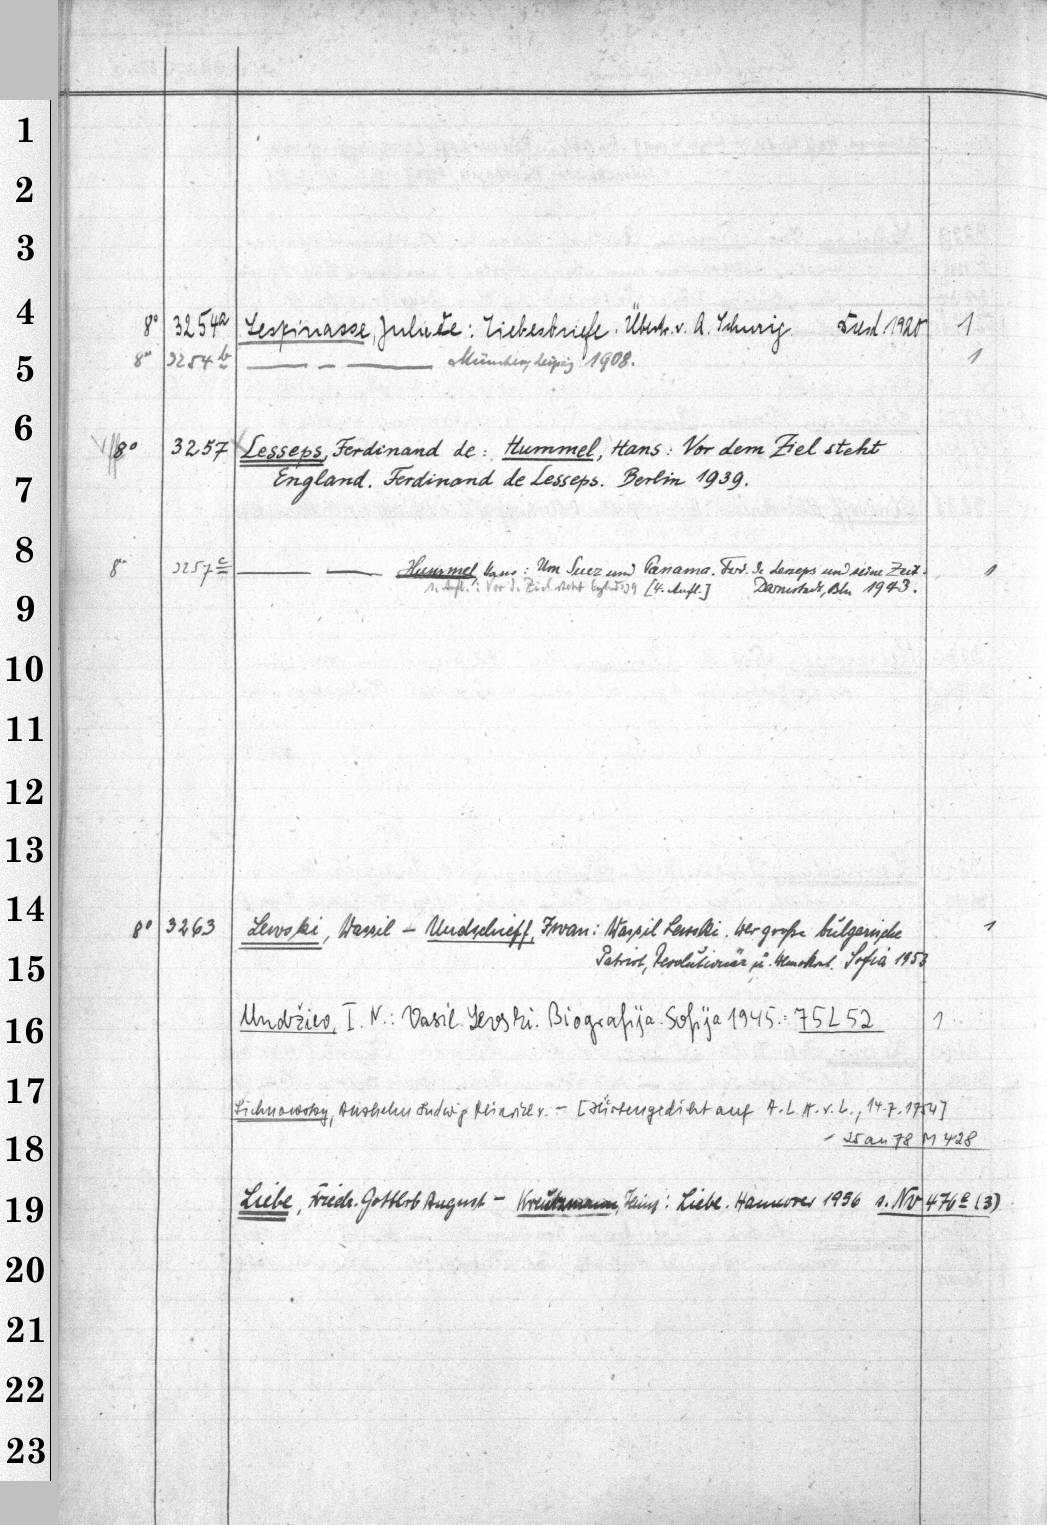 1
2
3
4
8° 3254a Lespinasse, Julie de: Liebesbriefe. Übers. v. A. Schurig. Dresd 1920 1
5
8° 3254b — — — München, Leipzig 1908. 1
6
8° 3257 Lesseps, Ferdinand de: Hummel, Hans: Vor dem Ziel steht
7
England. Ferdinand de Lesseps. Berlin 1939.
8
8° 3257c — — Hummel, Hans: Um Suez und Panama. Ferd. de Lesseps und seine Zeit. 1
9
1. Aufl.: Vor d. Ziel steht England [4. Aufl.] Darmstadt, Bln 1943.
10
11
12
13
14
8° 3263 Lewski, Wassil – Undschieff, Iwan: Wassil Lewski. Der große bulgarische 1
15
Patriot, Revolutionär u. Demokrat. Sofia 1953
16
Undžiev, I. N.: Vasil Levski. Biografija. Sofija 1945.: 75 L 52 1
17
Lichnowsky, Ludwig v. – [Hirtengedicht auf A. L. K. v. L., 14.7.1754]
18
– 25 an 78 M 428
19
Liebe, Friedr. Gottlob August – Kreutzmann, Heinz: Liebe. Hannover 1956 s. Nv 476e (3)
20
21
22
23